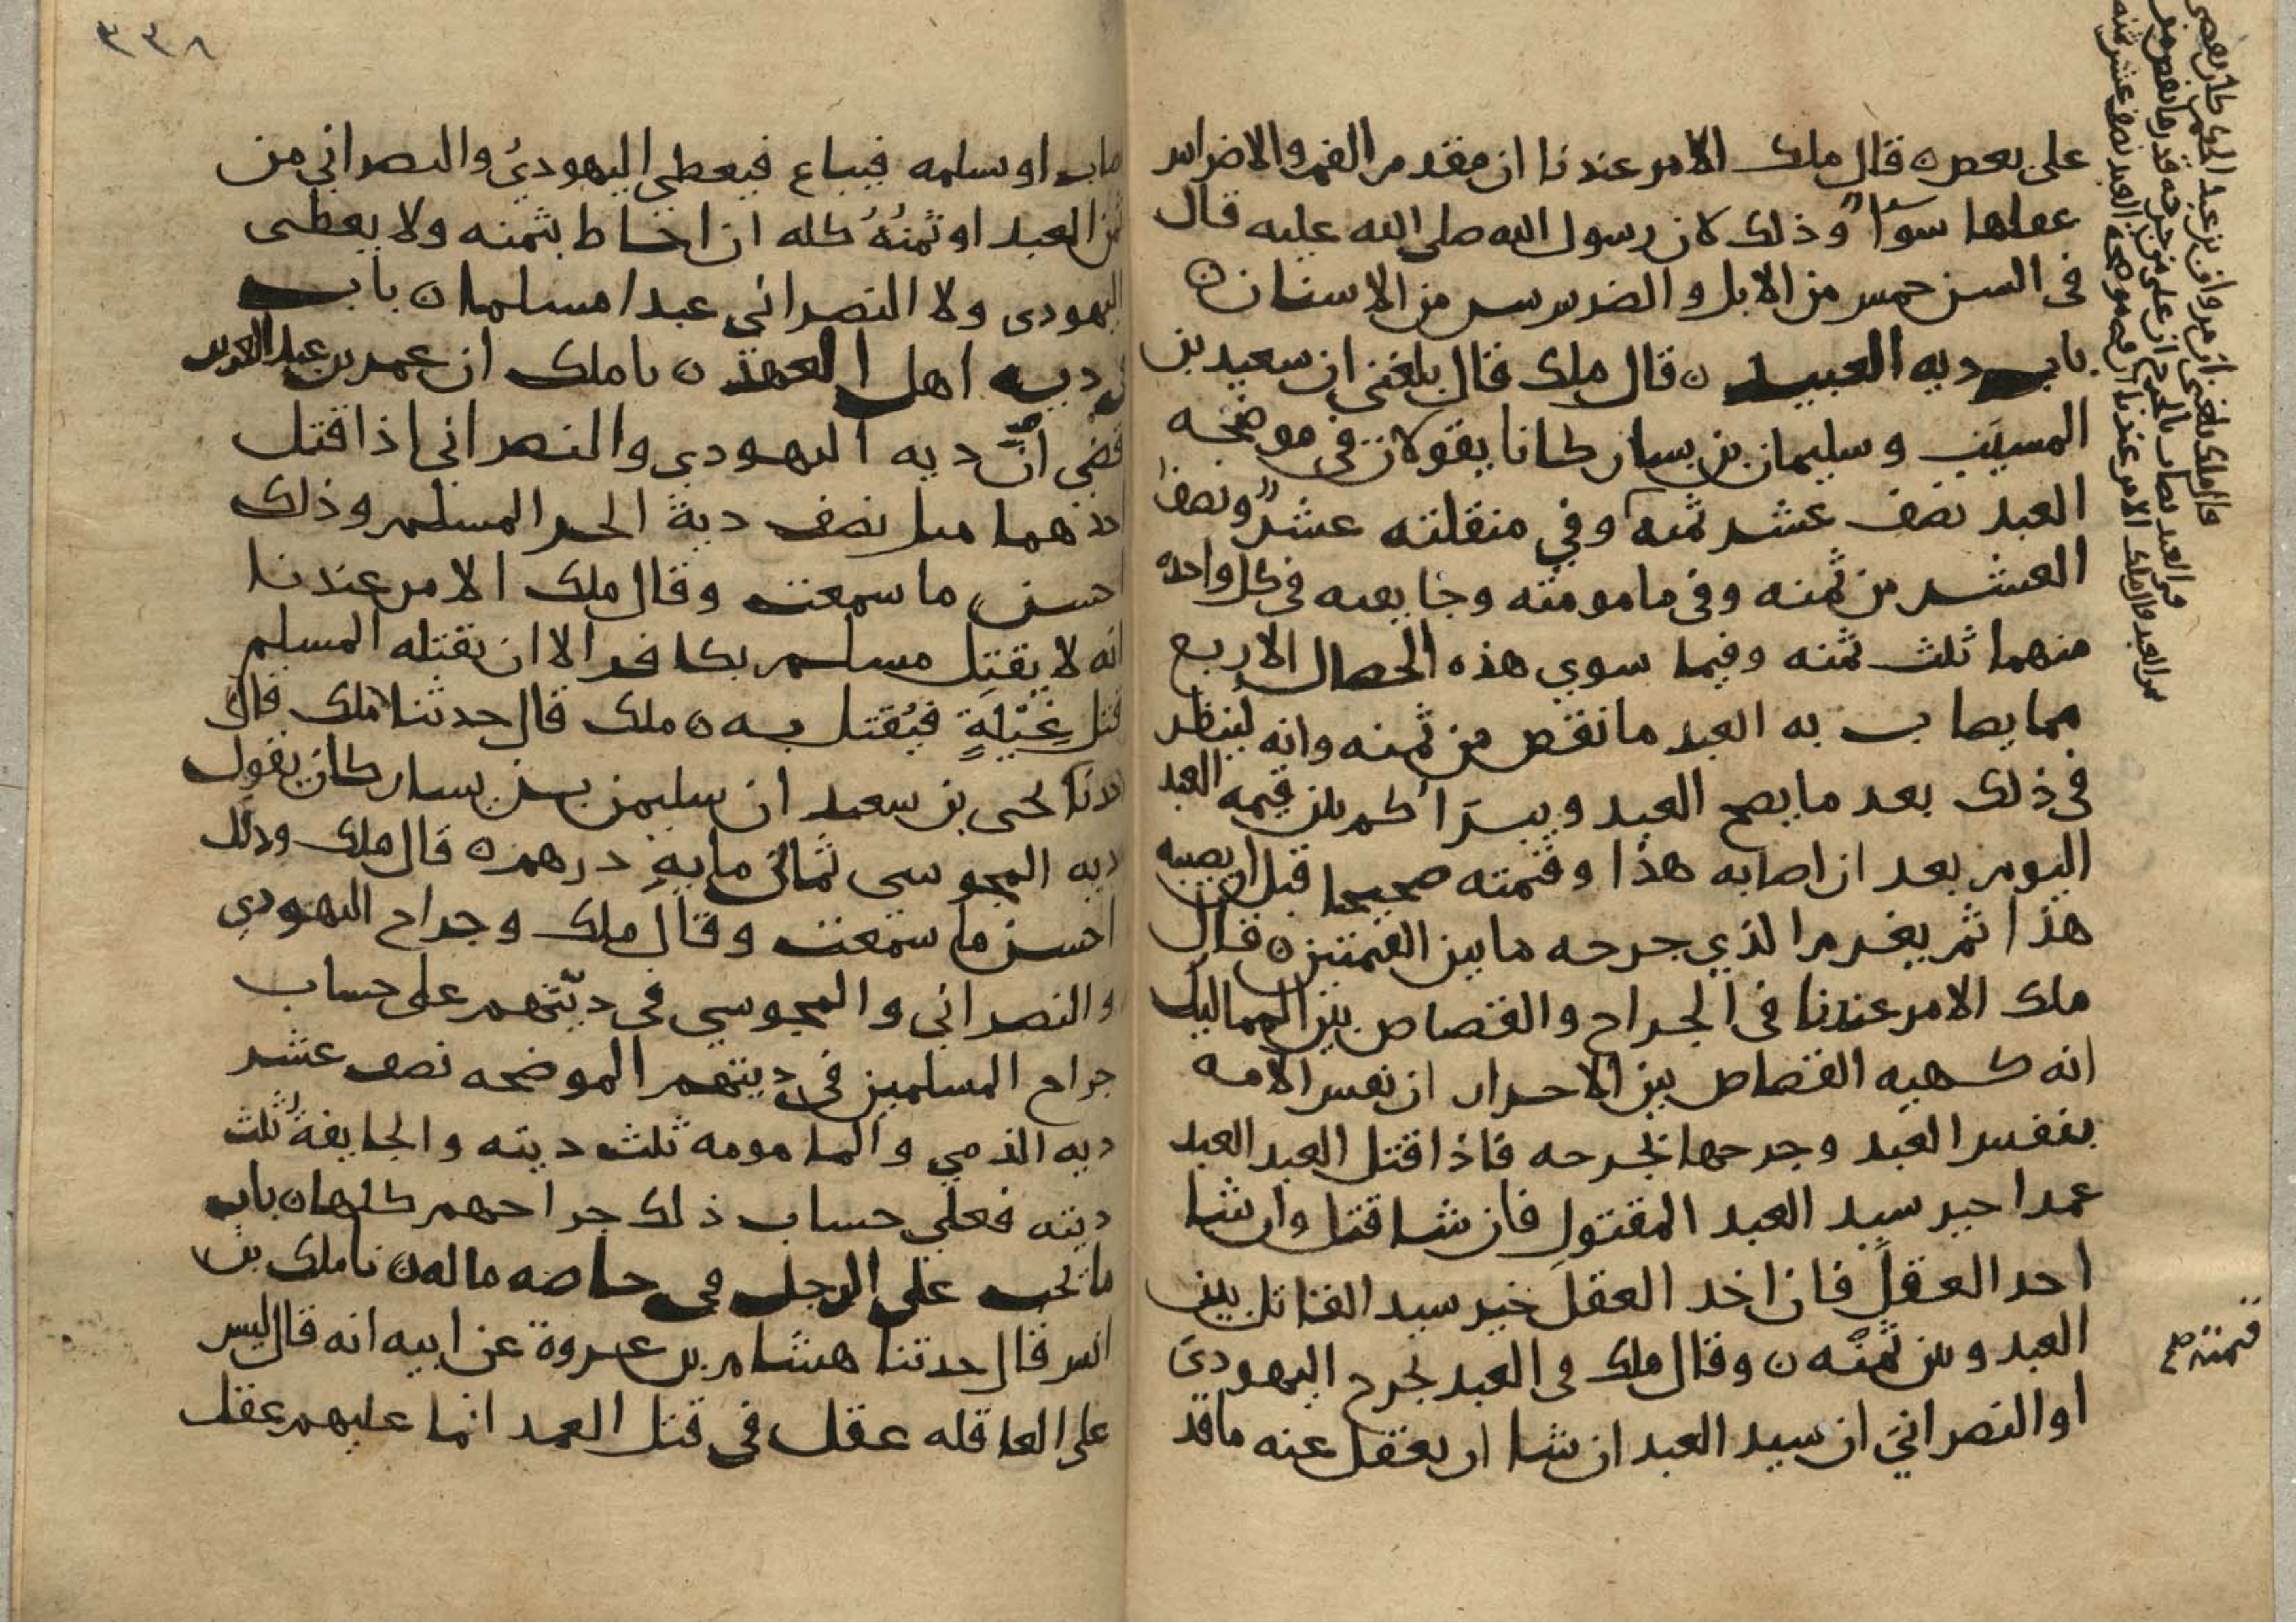 على بعض ه قال ملك الامر عندنا ان مقدم الفم والاضراس
عقلها سوآ وذلك لان رسول الله صلى الله عليه قال
في السن خمس من الابل والضرس سن من الاسنان ه
باب دية العبيد ه قال ملك قال بلغني ان سعيد بن
المسيب وسليمان بن يسار كانا يقولان في موضحه
العبد نصف عشر ثمنه وفي منقلته عشر ونصف
العشر من ثمنه وفي مامومته وجايفته في كل واحده
منهما ثلث ثمنه وفيما سوي هذه الخصال الاربع
مما يصاب به العبد ما نقص من ثمنه وانه لينظر
في ذلك بعد ما يصح العبد ويبرا كم بين قيمه العبد
اليوم بعد ان اصابه هذا وقيمته صحيحا قبل ان يصيبه
هذا ثم يغرم الذي جرحه ما بين القيمتين ه قال
ملك الامر عندنا في الجراح والقصاص بين المماليك
انه كهيه القصاص بين الاحرار ان نفس الامه
بنفس العبد وجرحها بجرحه فاذا قتل العبد العبد
عمدا خير سيد العبد المقتول فان شا قتل وان شا
اخد العقل فان اخد العقل خير سيد القاتل بين
العبد وبين ثمنه ه وقال ملك في العبد يجرح اليهودي
او النصراني ان سيد العبد ان شا ان يعقل عنه ما قد
قال ملك بلغني ان مروان بن عبد الحكم كان يقضي
في العبد يصاب بالجرح ان على من جرحه قدر ما نقص من
العبد قال ملك الامر عندنا ان في موضحه العبد نصف عشر ثمنه
قيمته صح
٣٣٨
اصاب او سلمه فيباع فيعطي اليهودي والنصراني من
ثمن العبد او ثمنه كله ان احاط بثمنه ولا يعطى
اليهودي ولا النصراني عبدا مسلما ه باب
في دية اهل العهد ه نا ملك ان عمر بن عبد العزيز
قضي ان دية اليهودي والنصراني اذا قتل
احدهما مثل نصف دية الحر المسلم وذلك
احسن ما سمعت وقال ملك الامر عندنا
انه لا يقتل مسلم بكافر الا ان يقتله المسلم
قتل غيلة فيقتل به ه ملك قال حدثنا ملك قال
حدثنا يحيى بن سعيد ان سليمن بن يسار كان يقول
دية المجوسي ثماني ماية درهم ه قال ملك وذلك
احسن ما سمعت وقال ملك وجراح اليهودي
والنصراني والمجوسي في ديتهم على حساب
جراح المسلمين في ديتهم الموضحه نصف عشر
دية الذمي والمامومه ثلث ديته والجايفة ثلث
ديته فعلي حساب ذلك جراحهم كلها ه باب
ما يجب على الرجل في خاصه ماله ه نا ملك بن
انس قال حدثنا هشام بن عروة عن ابيه انه قال ليس
على العاقله عقل في قتل العمد انما عليهم عقل